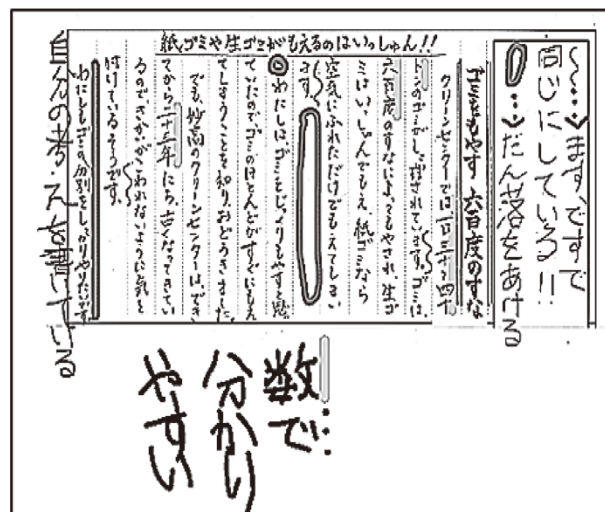 〜〜…→ますですで
同じにしている!!
…→だん落をあける
紙ゴミや生ゴミがもえるのはいっしゅん!!
ゴミをもやす 六百度のすな
クリーンセンターでは一日三十四
トンのゴミがしょ理されています。ゴミは、
六百度のすなによってもやされ、生ゴ
ミはいっしゅんでもえ、紙ゴミなら
空気にふれただけでもえてしまい
ます。
わたしは、ゴミをじっくりもやすと思っ
ていたのでゴミのほとんどがすぐにもえ
てしまうことを知り、おどろきました。
でも、妙高のクリーンセンターは、でき
てから二十三年にたち、古くなってきてい
るので
こわれないように気を
付けているそうです。
わたしもゴミの分別をしっかりやりたいです。
自分の考えを書いている
数で…
分かり
やすい